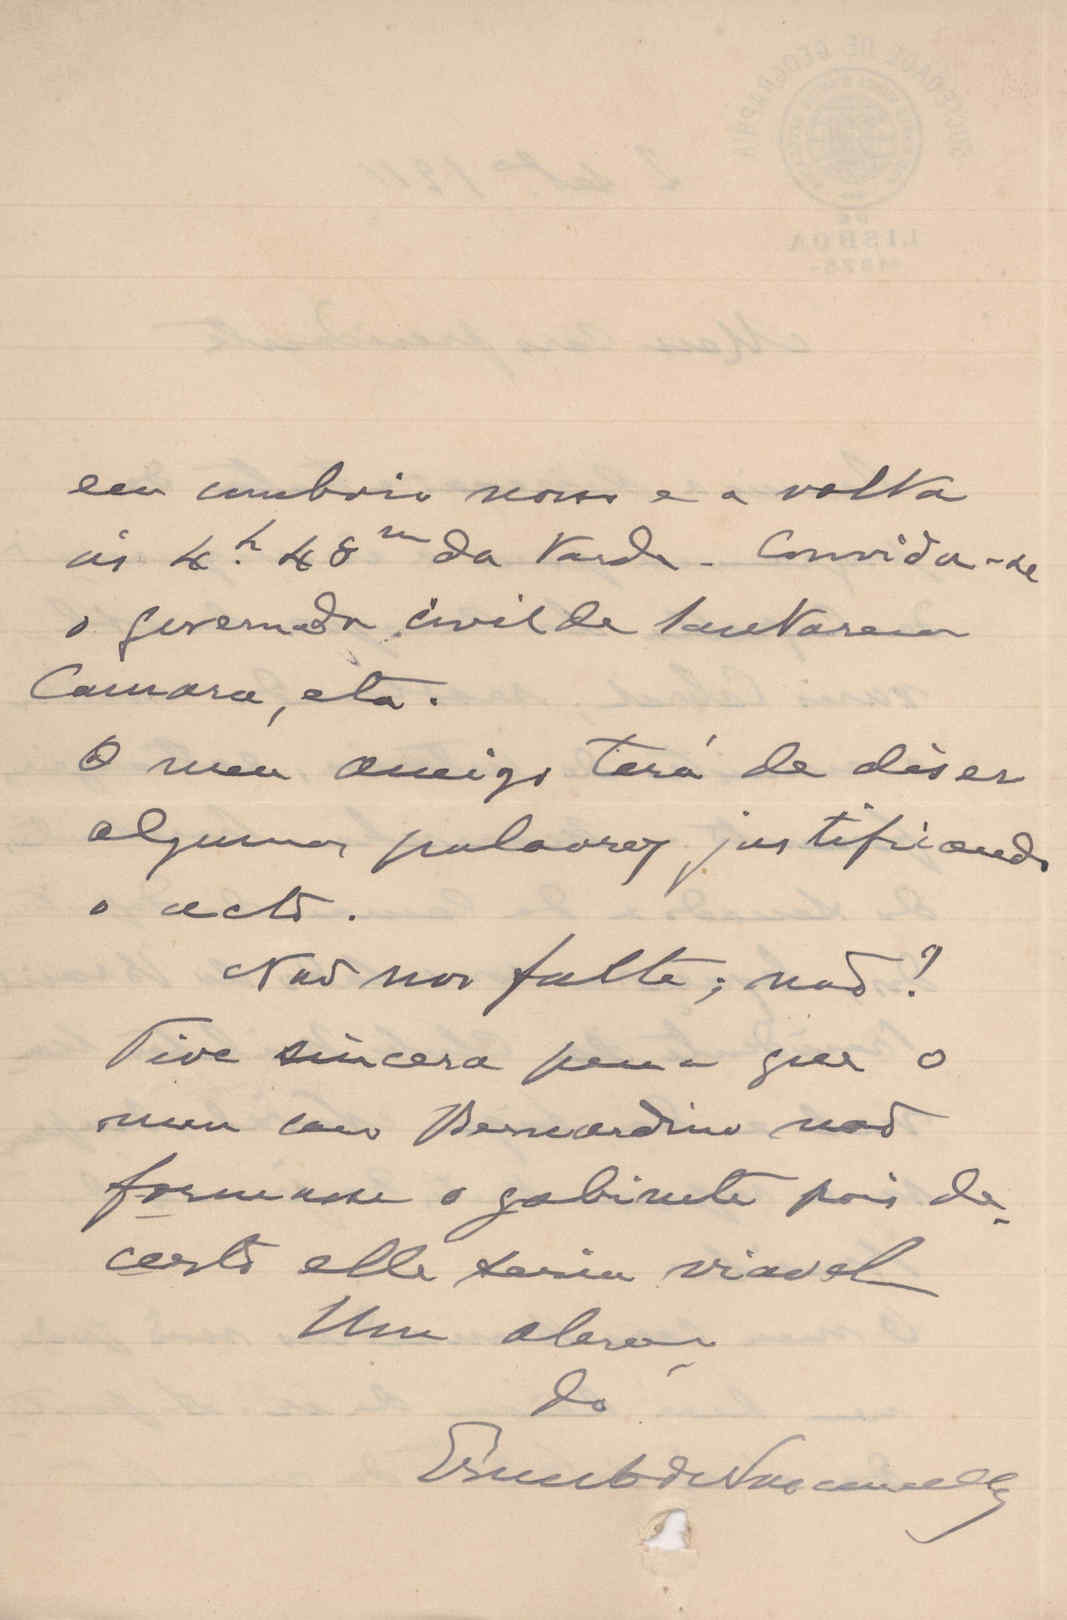 em comboio nosso e a volta
ás 4h. 48m da tarde. Convida-se
o governador civil de Santarem
Camara, etc.
O meu amigo terá de diser
algumas palavras justificando
o acto.
Não nos falte; não?
Tive sincera pena que o
meu caro Bernardino não
formasse o gabinete pois de-
certo elle seria viavel
Um abraço
do
Ernesto de Vasconcellos